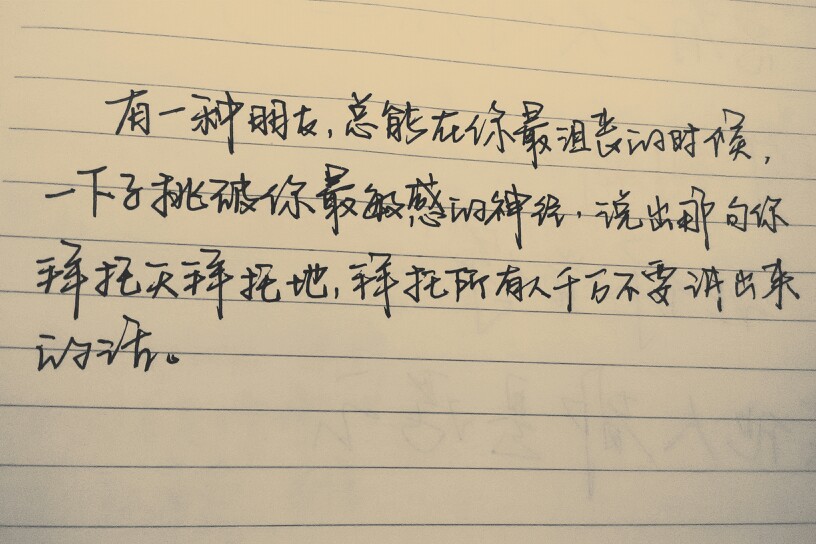 有一种朋友,总能在你最沮丧的时候,
一下子挑破你最敏感的神经,说出那句你
拜托天拜托地,拜托所有人千万不要讲出来
的话。